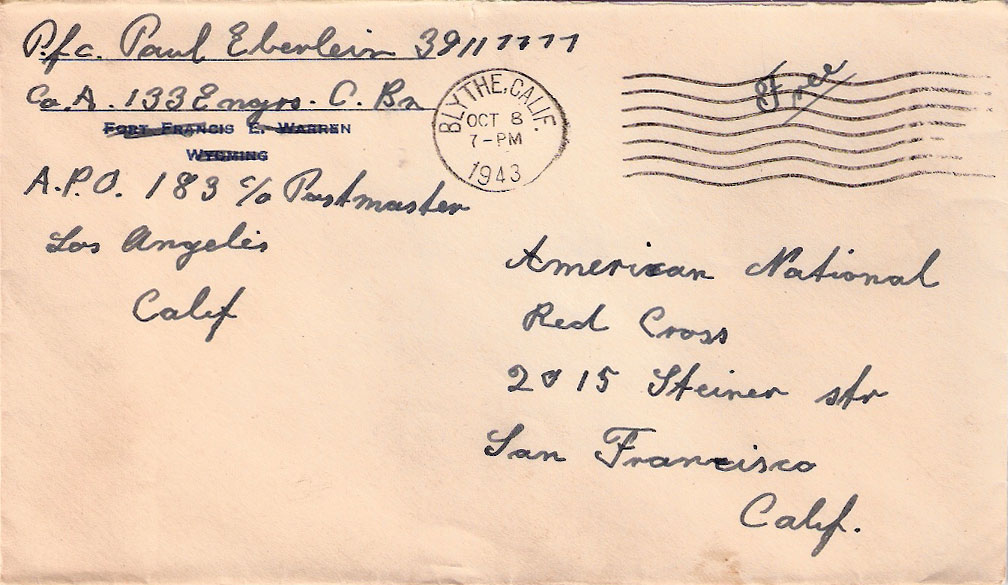 Pfc. Paul Eberlein 39117777
Co. A. 133 Engrs. C. Bn
FORT FRANCIS E. WARREN
WYOMING
A.P.O. 183 c/o Postmaster
Los Angeles
Calif
BLYTHE, CALIF.
OCT 8
7-PM
1943
Free
American National
Red Cross
2015 Steiner str
San Francisco
Calif.